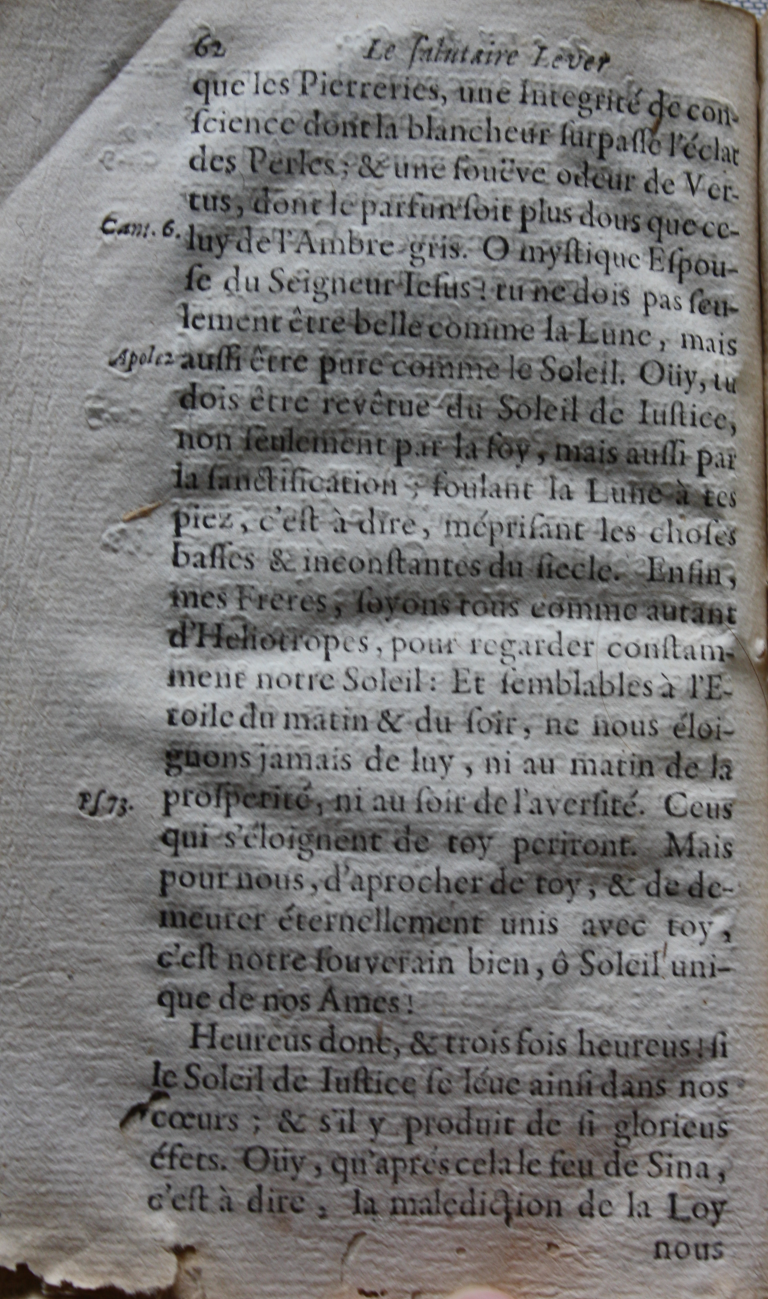 62 Le ſalutaire Lever
que les Pierreries, une Integrité de con-
ſcience dont la blancheur ſurpaſſe l'éclat
des Perles; & une ſouëve odeur de Ver-
tus, dont le parfun ſoit plus dous que ce-
Cant. 6. luy de l'Ambre gris. O myſtique Eſpou-
ſe du Seigneur Ieſus! tu ne dois pas ſeu-
lement être belle comme la Lune, mais
auſſi être pure comme le Soleil. Oüy, tu
dois être revêtue du Soleil de Iuſtice,
non ſeulement par la foy, mais auſſi par
la ſanctification; foulant la Lune à tes
piez, c'eſt à dire, mépriſant les choſes
baſſes & inconſtantes du ſiecle. Enfin,
mes Freres, ſoyons tous comme autant
d'Heliotropes, pour regarder conſtam-
ment notre Soleil: Et ſemblables à l'E-
toile du matin & du ſoir, ne nous éloi-
gnons jamais de luy, ni au matin de la
Pſ. 73. proſperité, ni au ſoir de l'averſité. Ceus
qui s'éloignent de toy periront. Mais
pour nous, d'aprocher de toy, & de de-
meurer éternellement unis avec toy,
c'eſt notre ſouverain bien, ô Soleil uni-
que de nos Ames!
Heureus donc, & trois fois heureus! ſi
le Soleil de Iuſtice ſe léue ainſi dans nos
cœurs; & s'il y produit de ſi glorieus
éfets. Oüy, qu'aprés cela le feu de Sina,
c'eſt à dire, la malediction de la Loy
nous